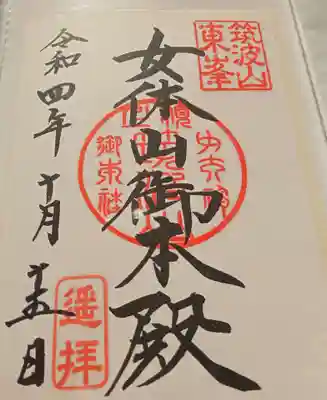 筑波山
東峯
女体山御本殿
令和四年十月十五日
遥拝